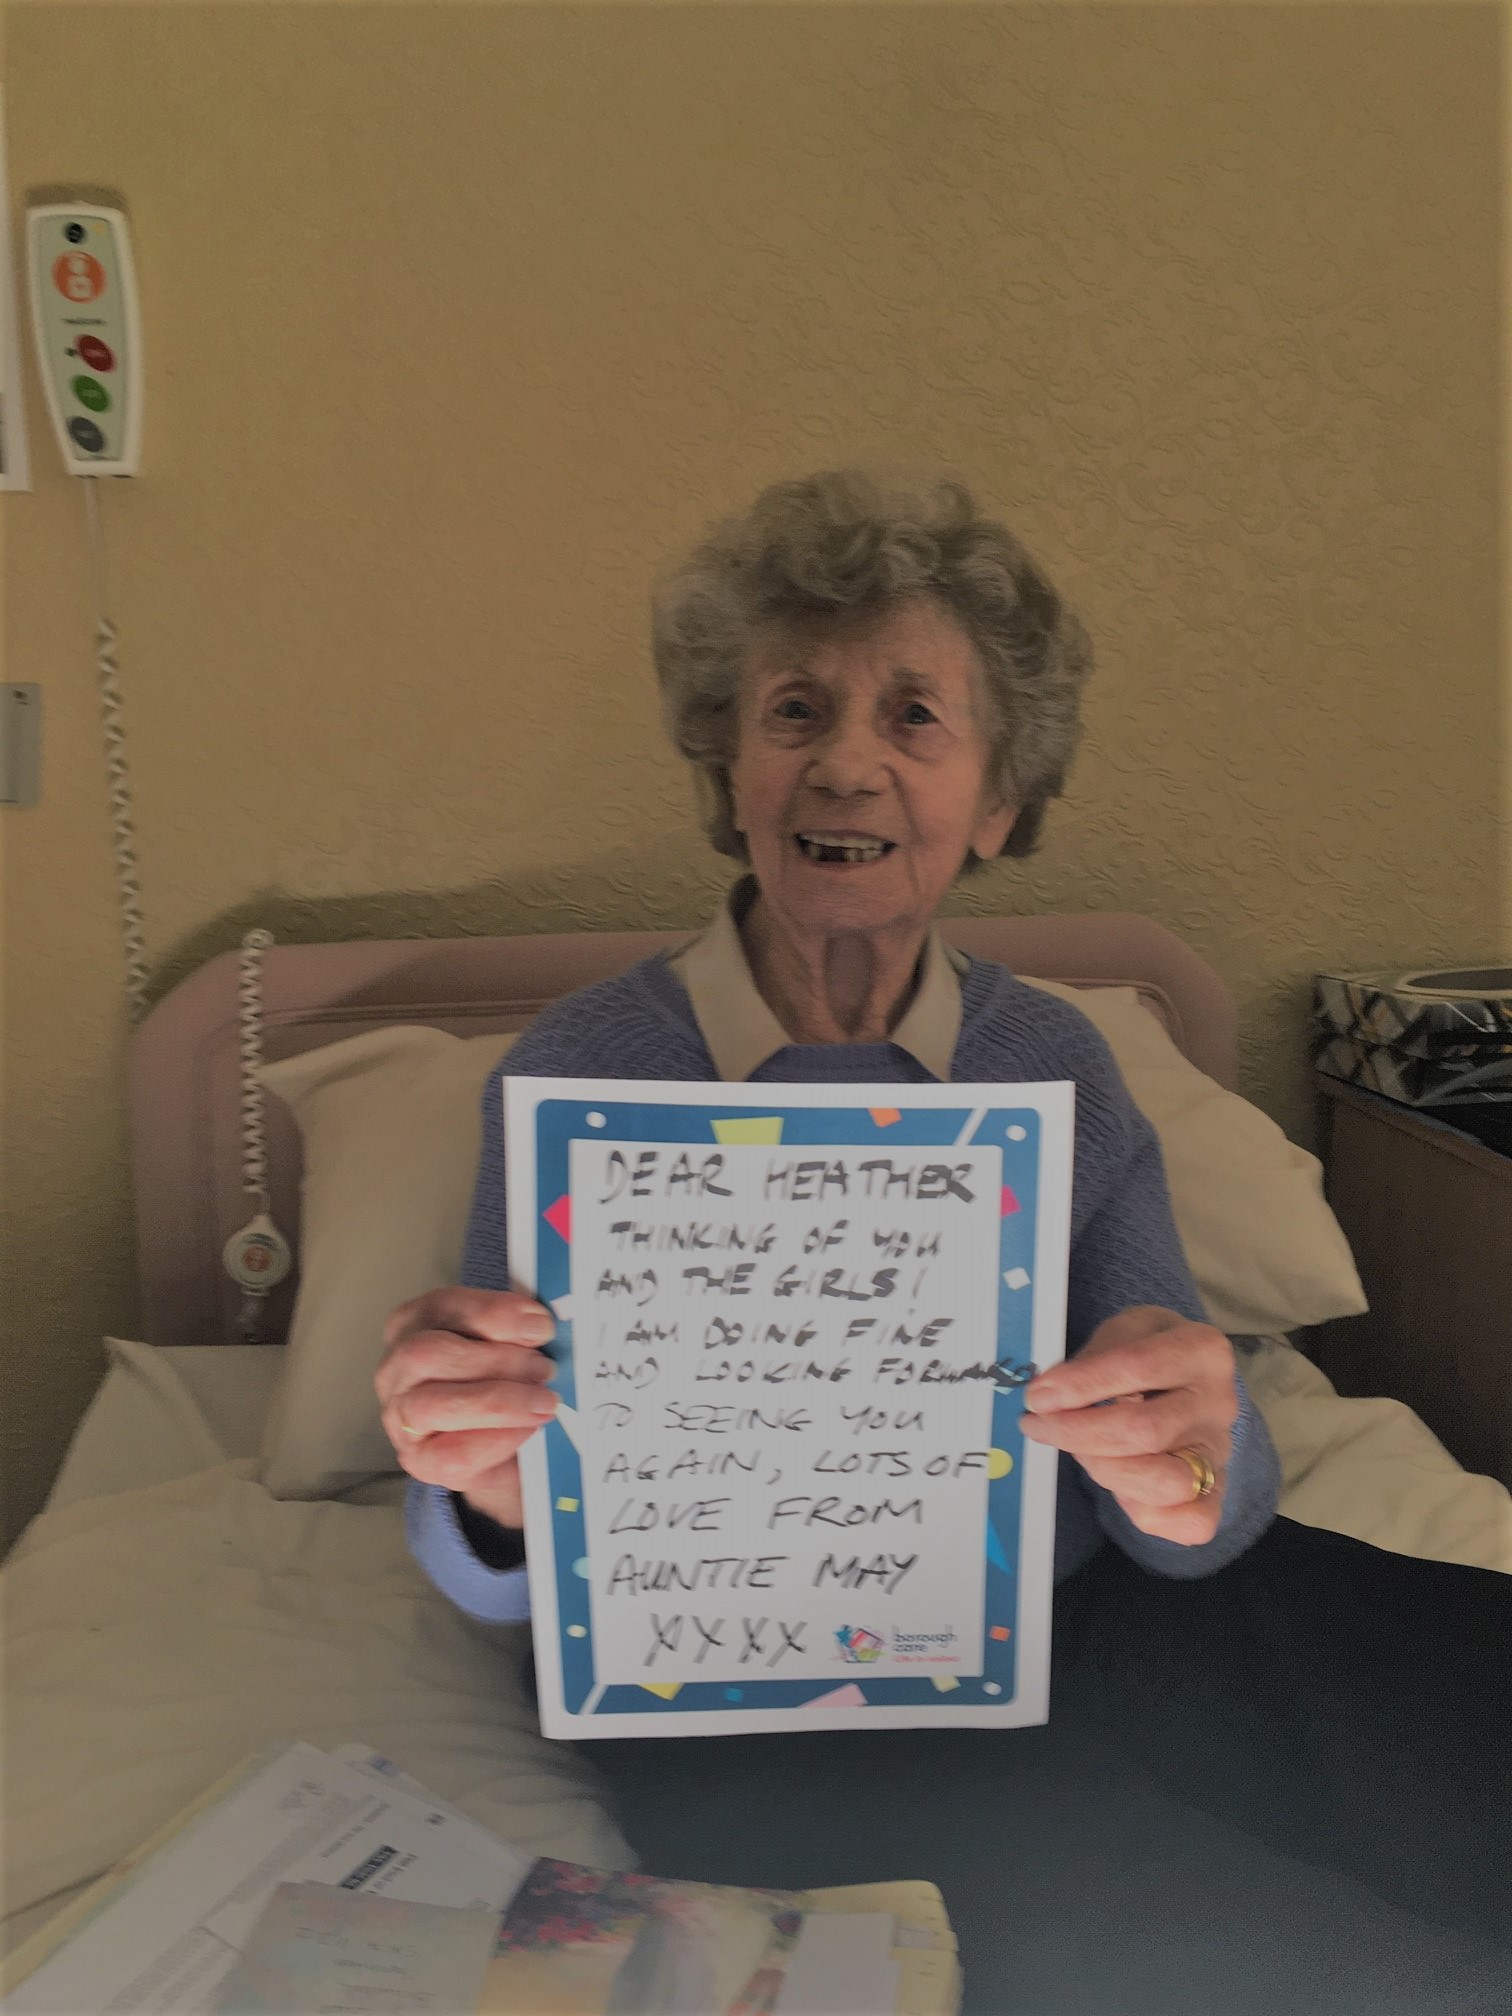 DEAR HEATHER
THINKING OF YOU
AND THE GIRLS!
I AM DOING FINE
AND LOOKING FORWARD
TO SEEING YOU
AGAIN, LOTS OF
LOVE FROM
AUNTIE MAY
XXXX
borough
care